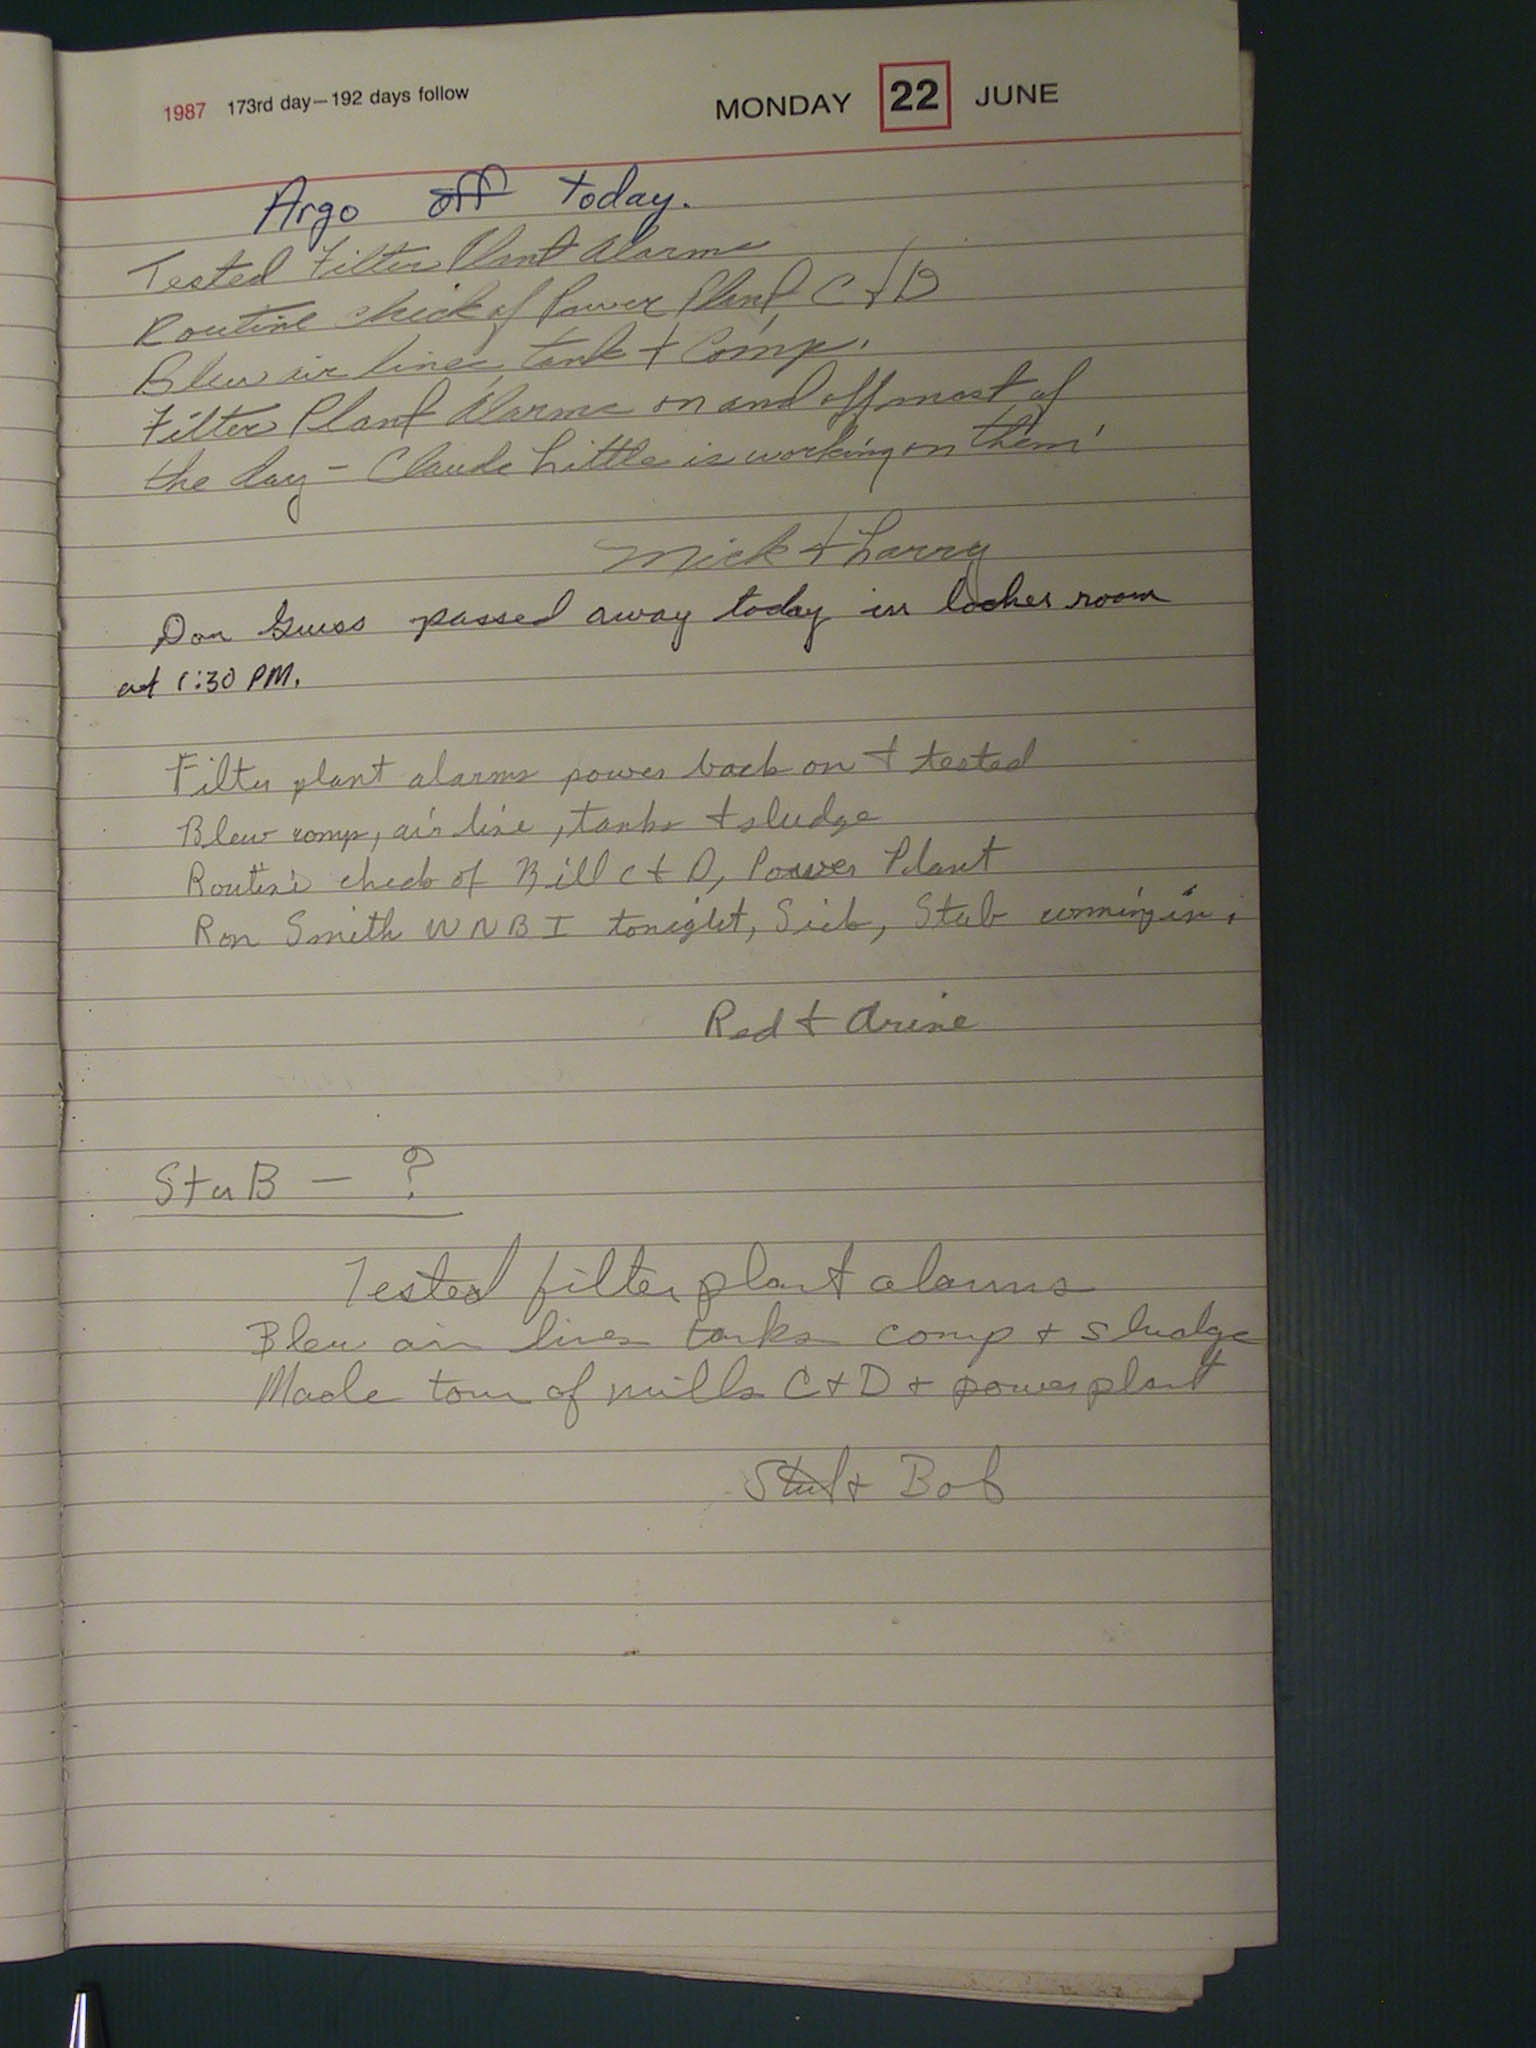 1987 173rd day—192 days follow MONDAY 22 JUNE
Argo off today.
Tested Filter Plant Alarms
Routine check of Power Plant, C + D
Blew air lines, tank + Comp.
Filter Plant Alarms on and off most of
the day - Claude Little is working on them
Mick + Larry
Don passed away today in locker room
at 1:30 PM.
Filter plant alarms power back on + tested
Blew comp, air line, tanks + sludge
Routine check of Bill C + D, Power Plant
Ron Smith WNBI tonight, Sick, Stub coming in.
Red +
StuB - ?
Tested filter plant alarms
Blew air lines tanks comp + sludge
Made tour of mills C + D + power plant
Stub + Bob